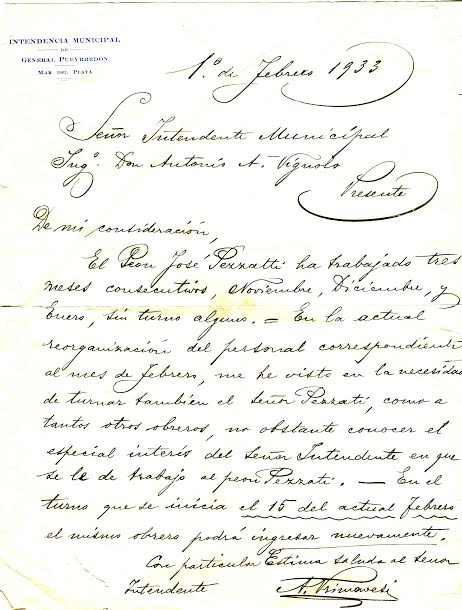 INTENDENCIA MUNICIPAL
DE
GENERAL PUEYRREDON
MAR DEL PLATA
1º. de Febrero 1933
Señor Intendente Municipal
Ingº. Don Antonio A. Vignolo
Presente
De mi consideración,
El Peon José Pezzatti ha trabajado tres
meses consecutivos, Noviembre, Diciembre, y
Enero, sin turno alguno. = En la actual
reorganización del personal correspondiente
al mes de Febrero, me he visto en la necesidad
de turnar también el señor Pezzati, como a
tantos otros obreros, no obstante conocer el
especial interés del Señor Intendente en que
se le de trabajo al peon Pezzati. — En el
turno que se inicia el 15 del actual Febrero
el mismo obrero podrá ingresar nuevamente.
Con particular Estima saluda al Señor
Intendente
A. Primavesi